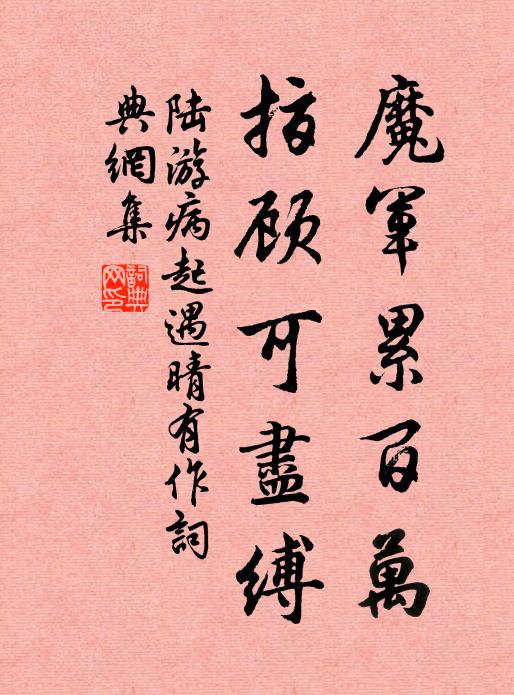 魔軍累百萬
指顾可盡縛
陆游病起遇晴有作詞
典網集
詞典網印